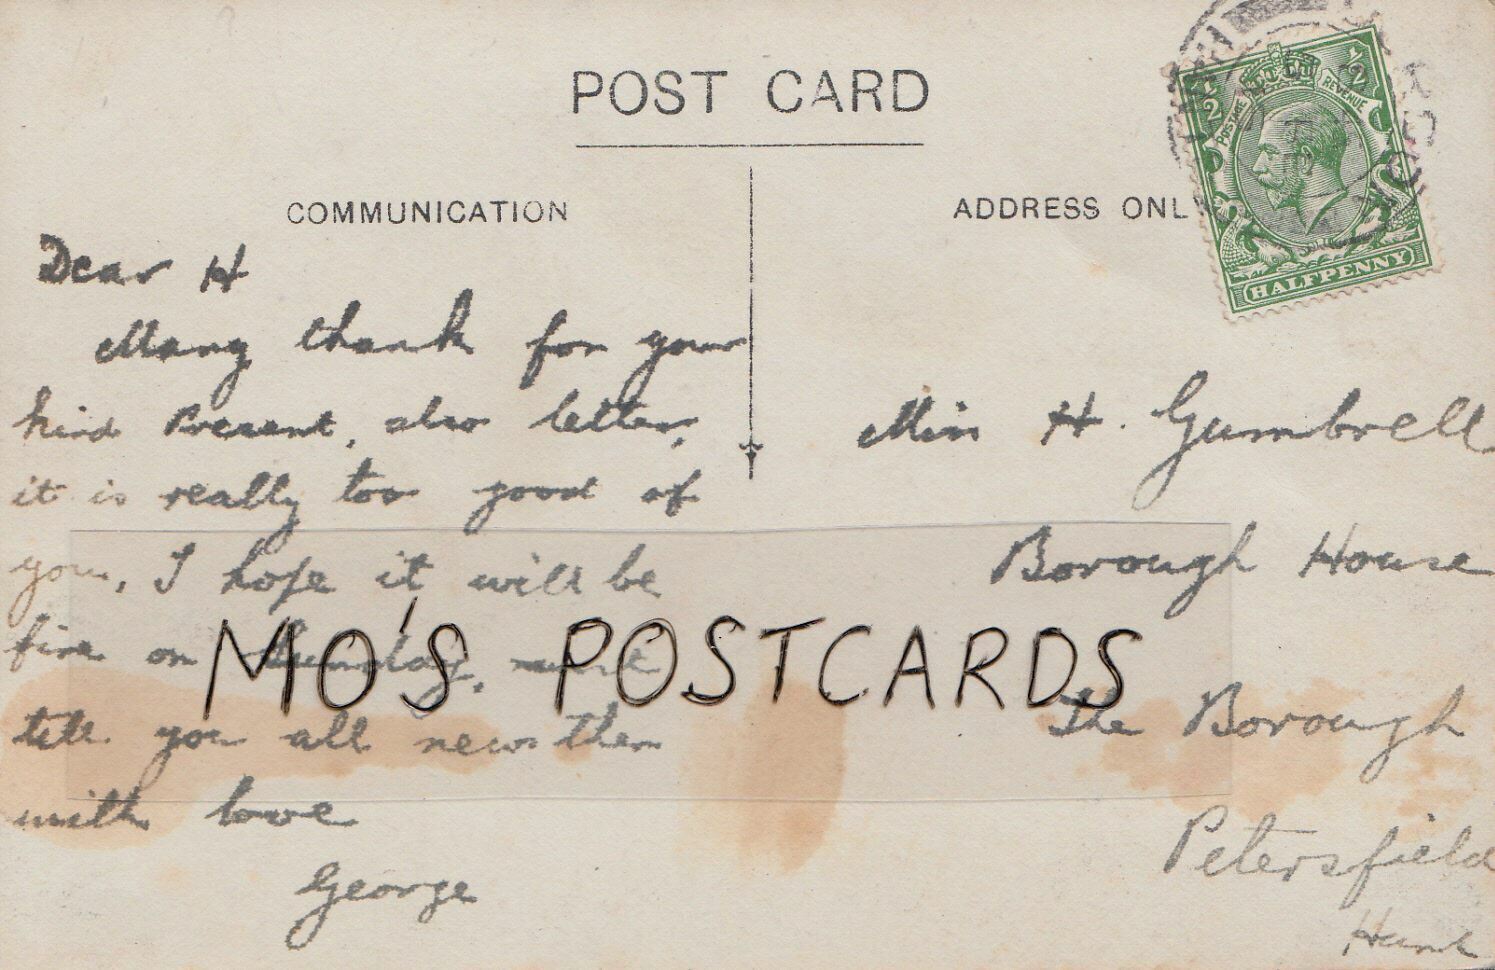 POST CARD
COMMUNICATION
ADDRESS ONLY
POSTAGE REVENUE
1/2 1/2
HALFPENNY
Dear H
Many thank for your
kind Present, also letter,
it is really too good of
you, I hope it will be
fine on Sunday,
tell you all news then
with love
George
Miss H. Gumbrell
Borough House
The Borough
Petersfield
Hants
MO'S POSTCARDS